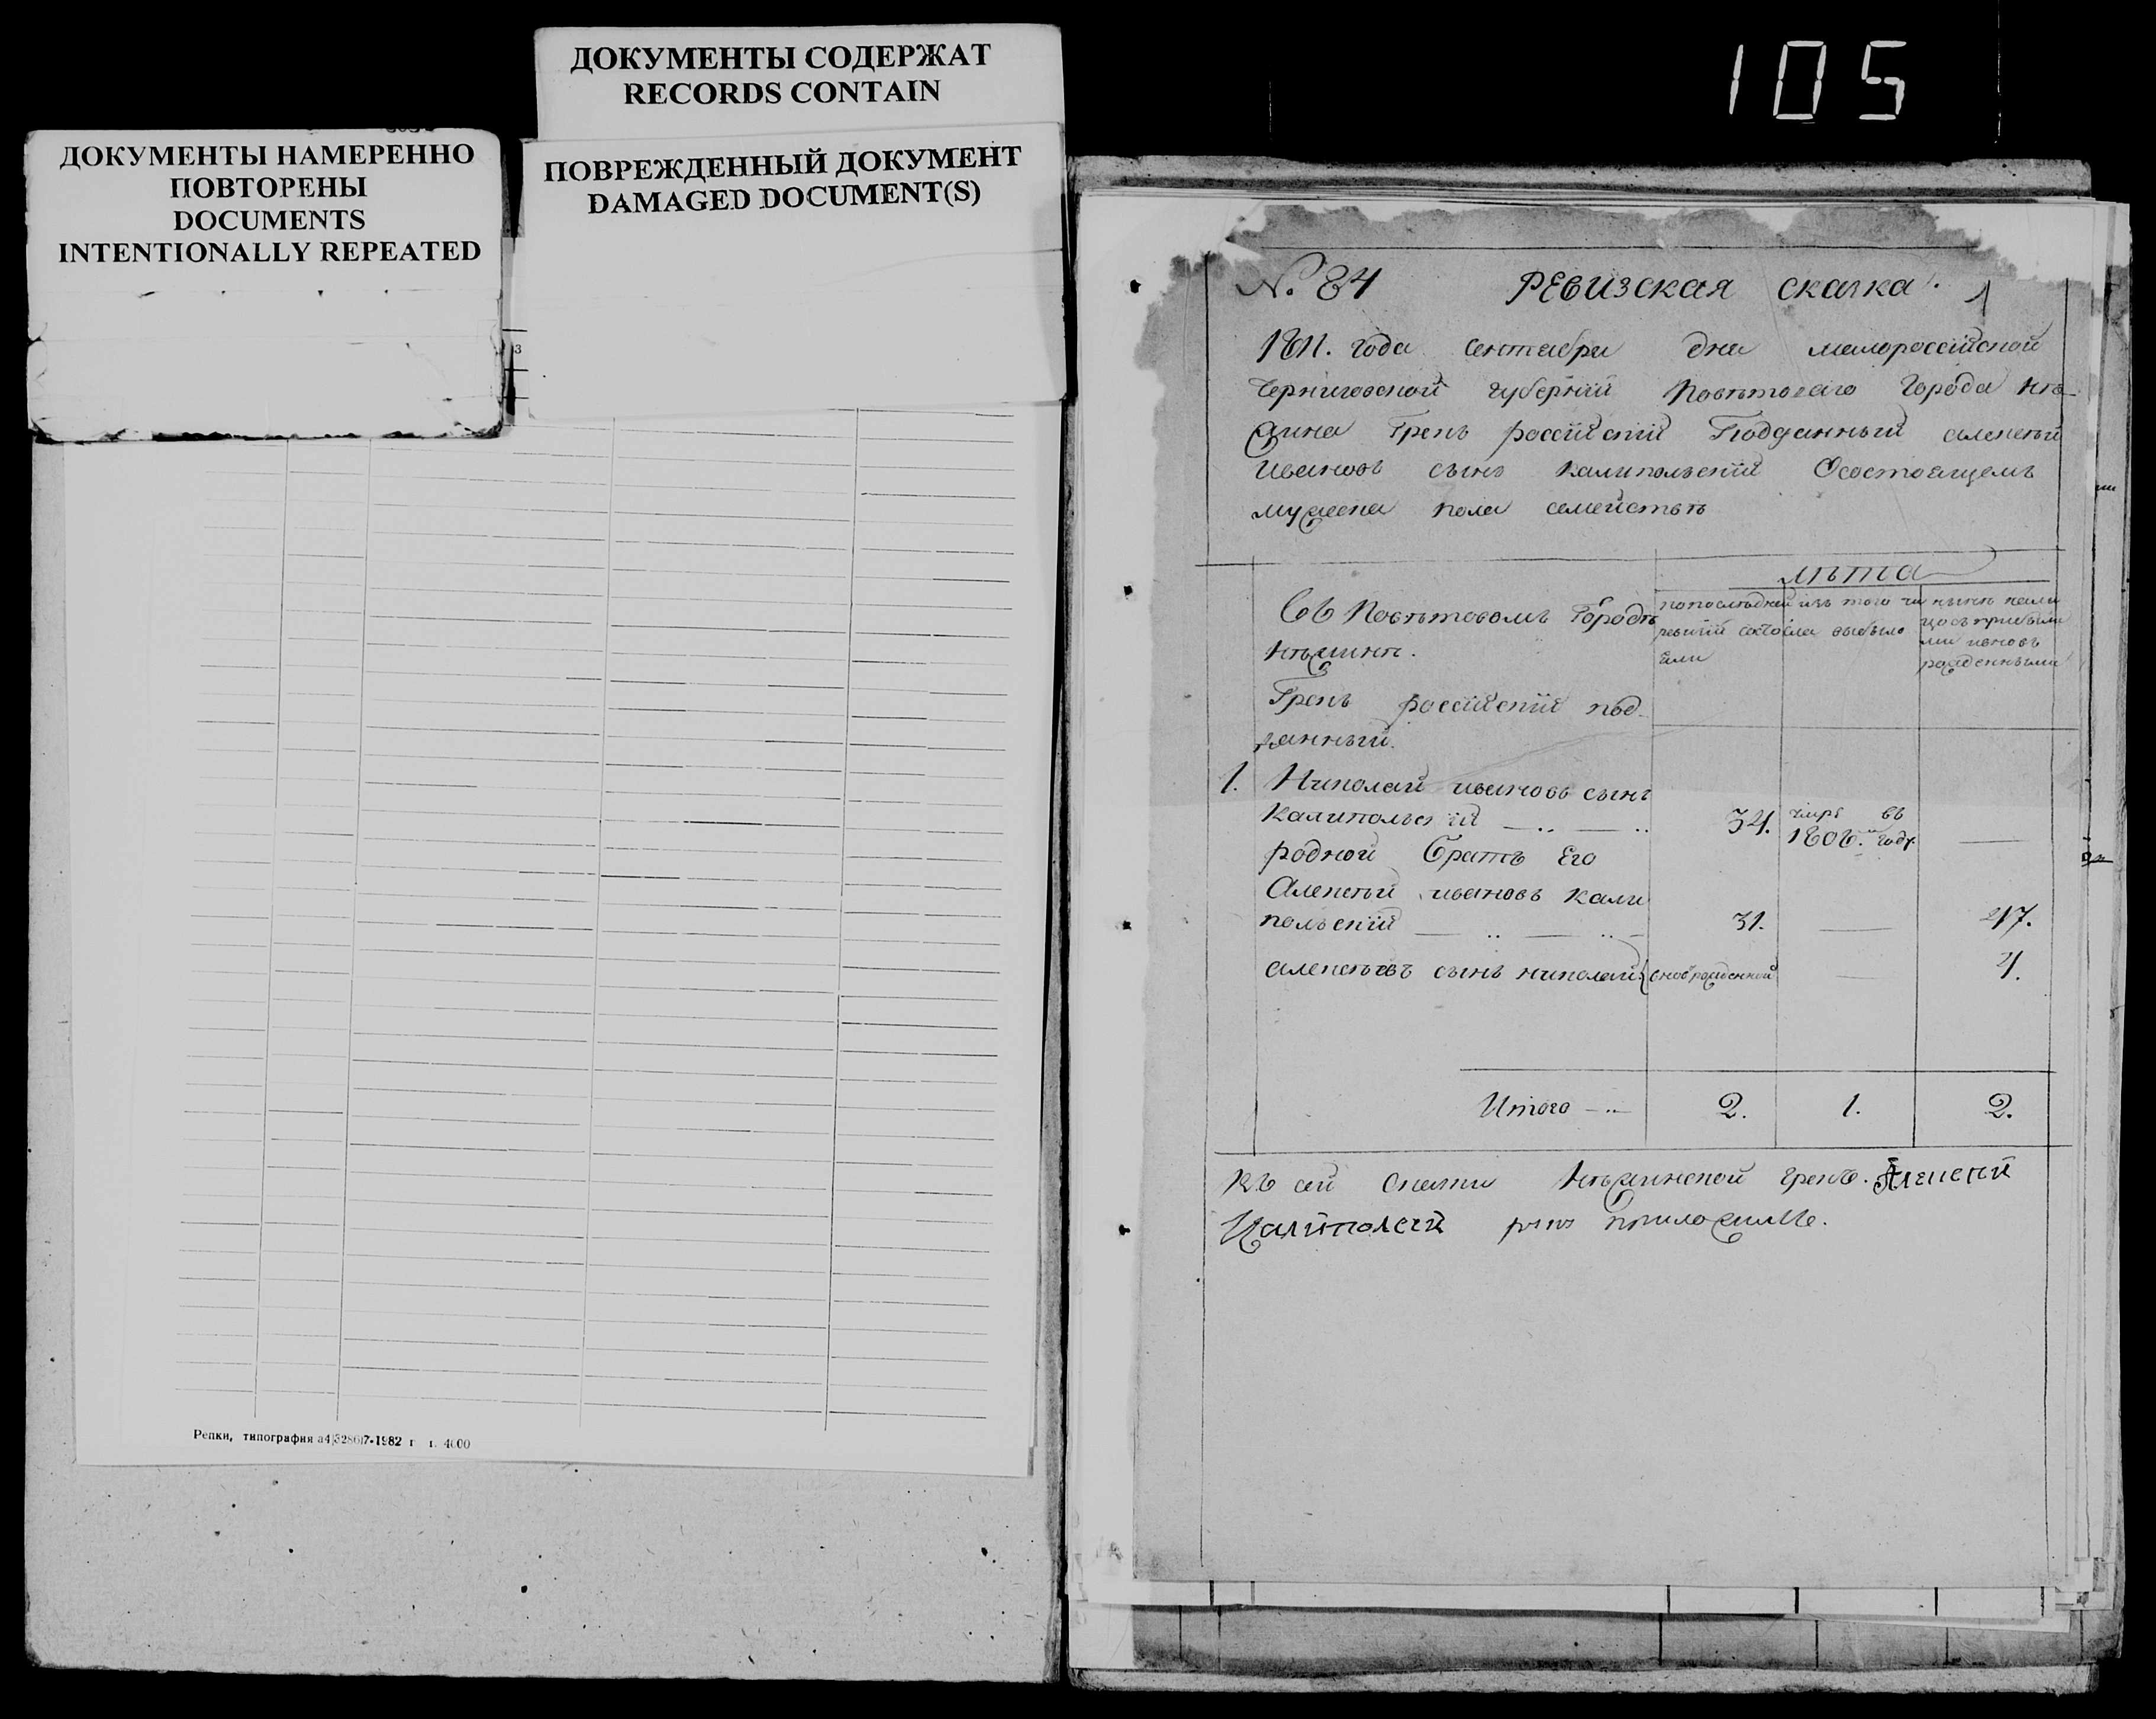 105
ДОКУМЕНТЫ СОДЕРЖАТ
RECORDS CONTAIN
ДОКУМЕНТЫ НАМЕРЕННО
ПОВТОРЕНЫ
DOCUMENTS
INTENTIONALLY REPEATED
ПОВРЕЖДЕННЫЙ ДОКУМЕНТ
DAMAGED DOCUMENT(S)
3
Репки, типография 1982 г. 4000
№. 84 РЕВИЗСКАЯ СКАСКА. 1
1811. года сентября дня малороссїйской
Черниговской губернїи Повѣтового города нѣ-
жина Грекъ россїйскїй Подданный алексѣй
ивановъ сынъ калипольскїй О состоящемъ
мужеска пола семействѣ
лѣта
Въ Повѣтовомъ Городѣ
нѣжинѣ.
по последней ревизїи состояли
изъ того числа выбыло
нынѣ на лицо съ прибылыми и вновь рожденными
Грекъ россїйскїй под-
данный.
1. Николай ивановъ сынъ
калипольскїй 34. умре въ 1806.м году. —
родной братъ Его
Алексѣй ивановъ кали
польскїй 31. — 47.
алексѣевъ сынъ николай вновь рожденной — 4.
Итого 2. 1. 2.
Къ сей скаски нѣжинской грекъ. Алексѣй
Калиполскїй руку приложилъ.